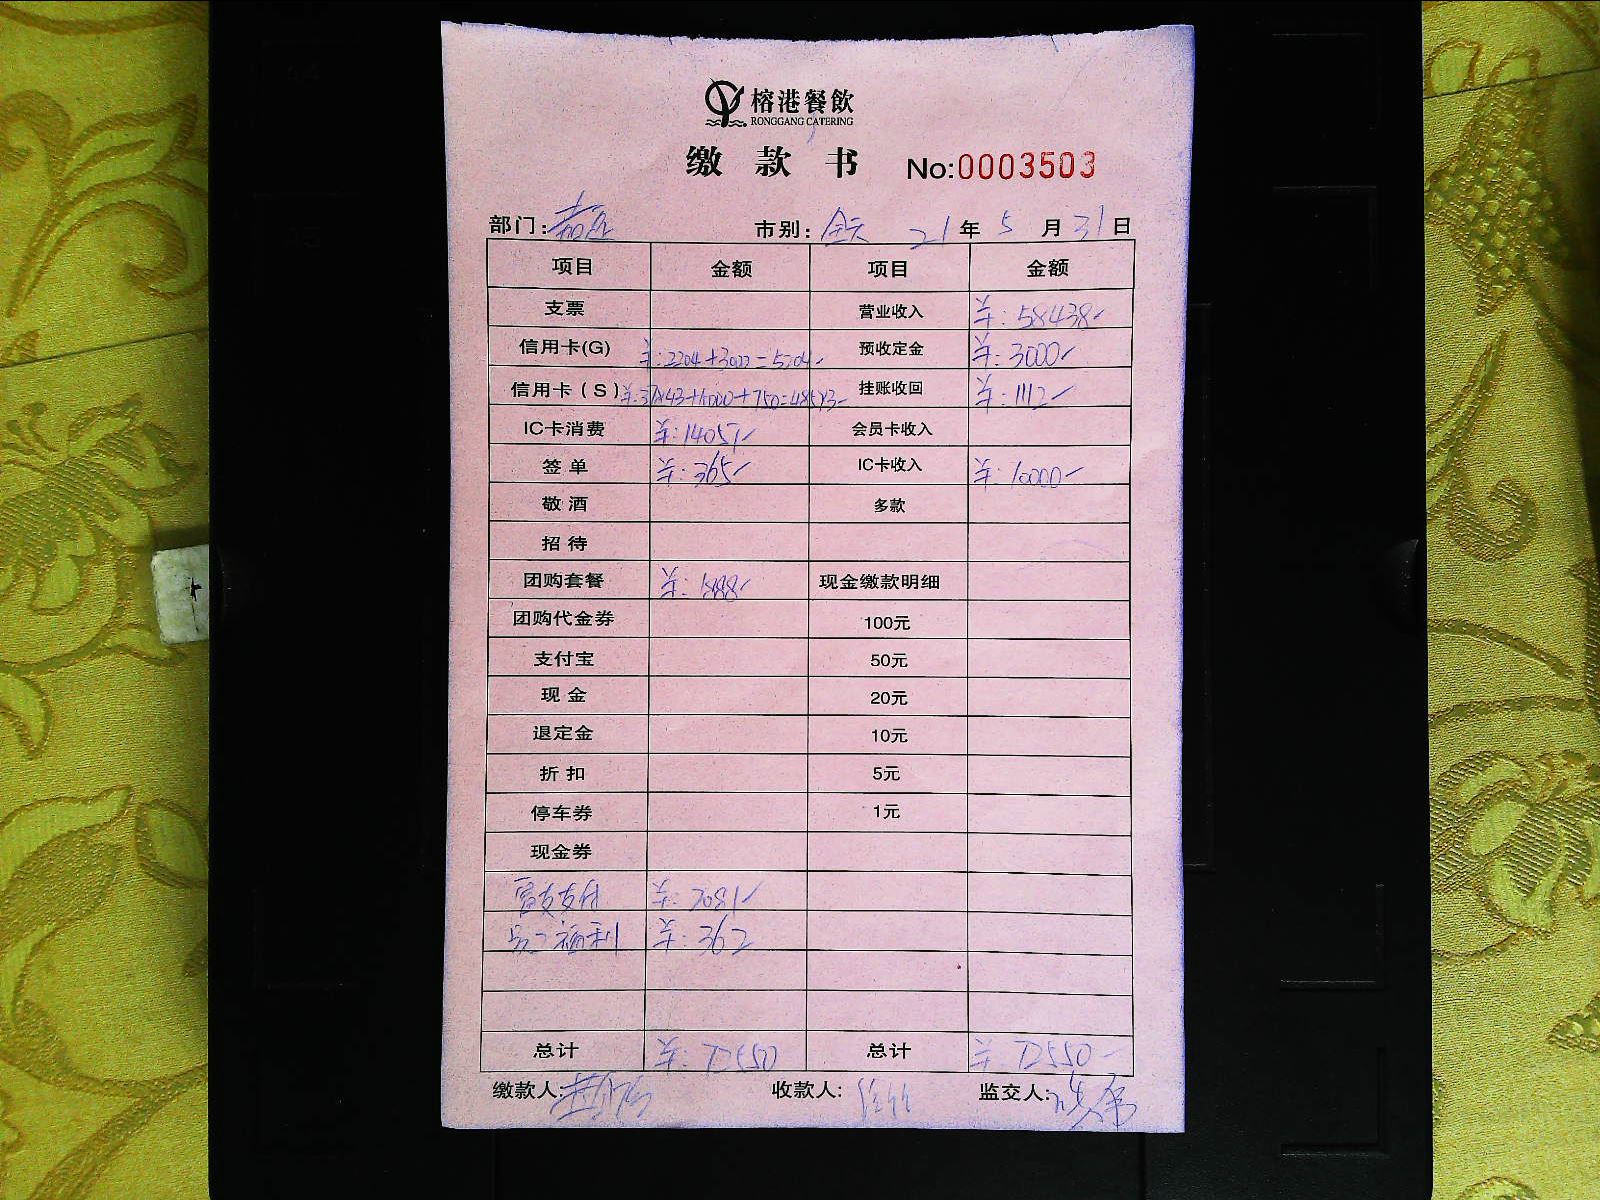 榕港餐飲
RONGGANG CATERING
缴款书 No:0003503
部门: 市别: 全天 21年5月31日
项目 金额 项目 金额
支票 营业收入 ¥:58438
信用卡(G) ¥:2204+3000=5204 预收定金 ¥:3000
信用卡(S) ¥:37843+10000+750=48593 挂账收回 ¥:1112
IC卡消费 ¥:14057 会员卡收入
签单 ¥:365 IC卡收入 ¥:10000
敬酒 多款
招待
团购套餐 ¥:1888 现金缴款明细
团购代金券 100元
支付宝 50元
现金 20元
退定金 10元
折扣 5元
停车券 1元
现金券
支付 ¥:2081
员工福利 ¥:362
总计 ¥:72550 总计 ¥72550
缴款人: 收款人: 监交人: